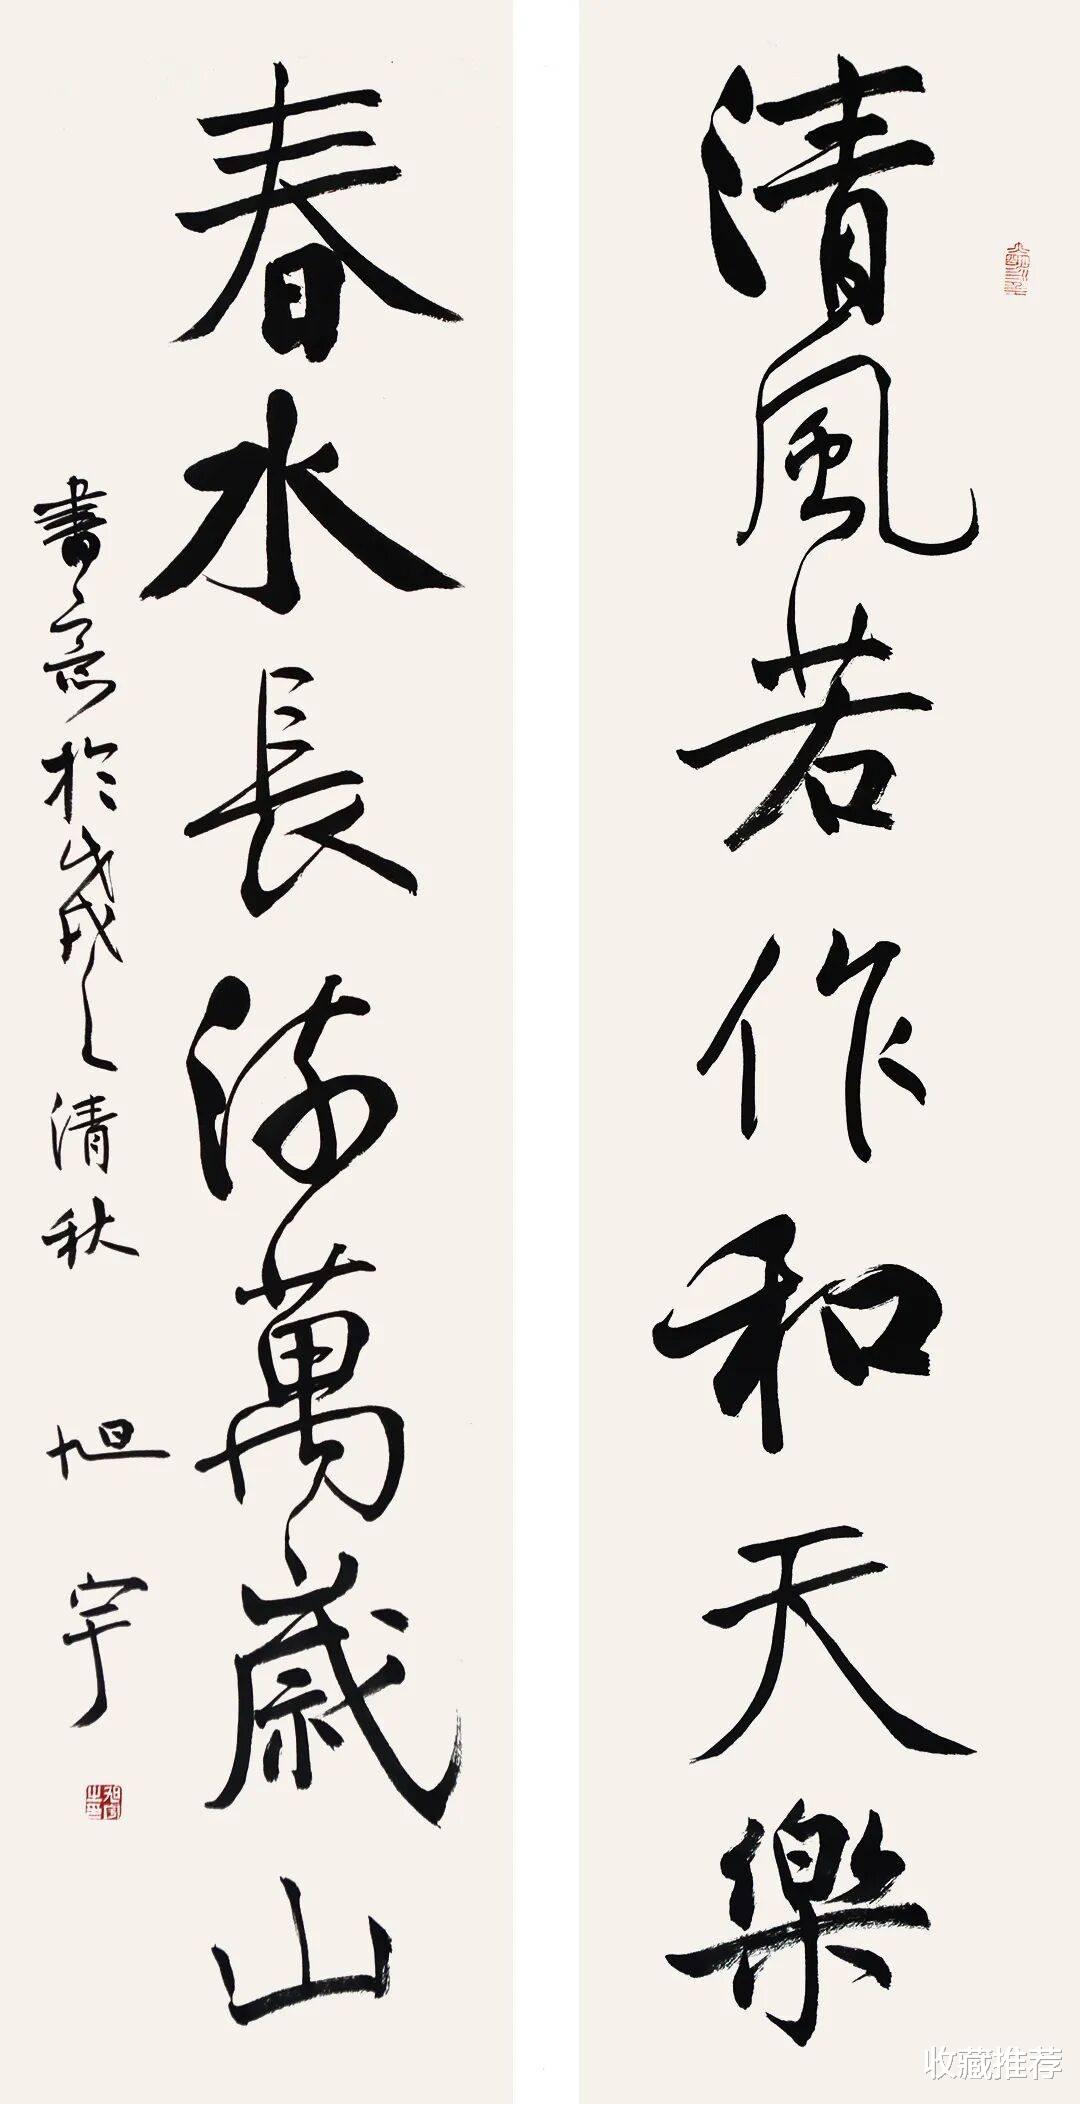 清風若作和天樂
春水長流萬歲山
書於戊戌之清秋
旭宇
旭宇之印
收藏推荐